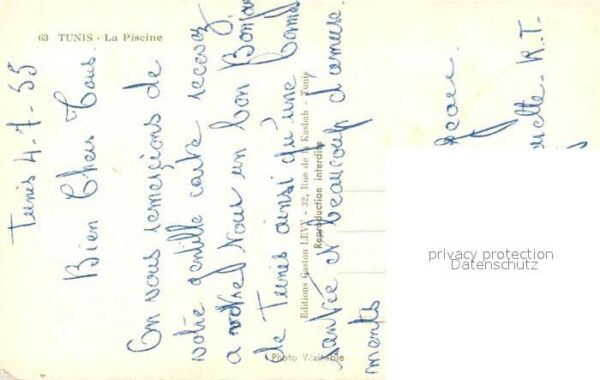 63 TUNIS - La Piscine
Tunis 4-7-55
Bien Chers Tous.
On vous remercions de
votre gentille carte recevez
a votre tour un bon Bonjour
de Tunis ainsi qu'une bonne
santé et beaucoup d'amuse
ments
R.T.
Editions Gaston LEVY - 32, Rue de la Kasbah - Tunis
Reproduction interdite
Photo Véritable
privacy protection
Datenschutz